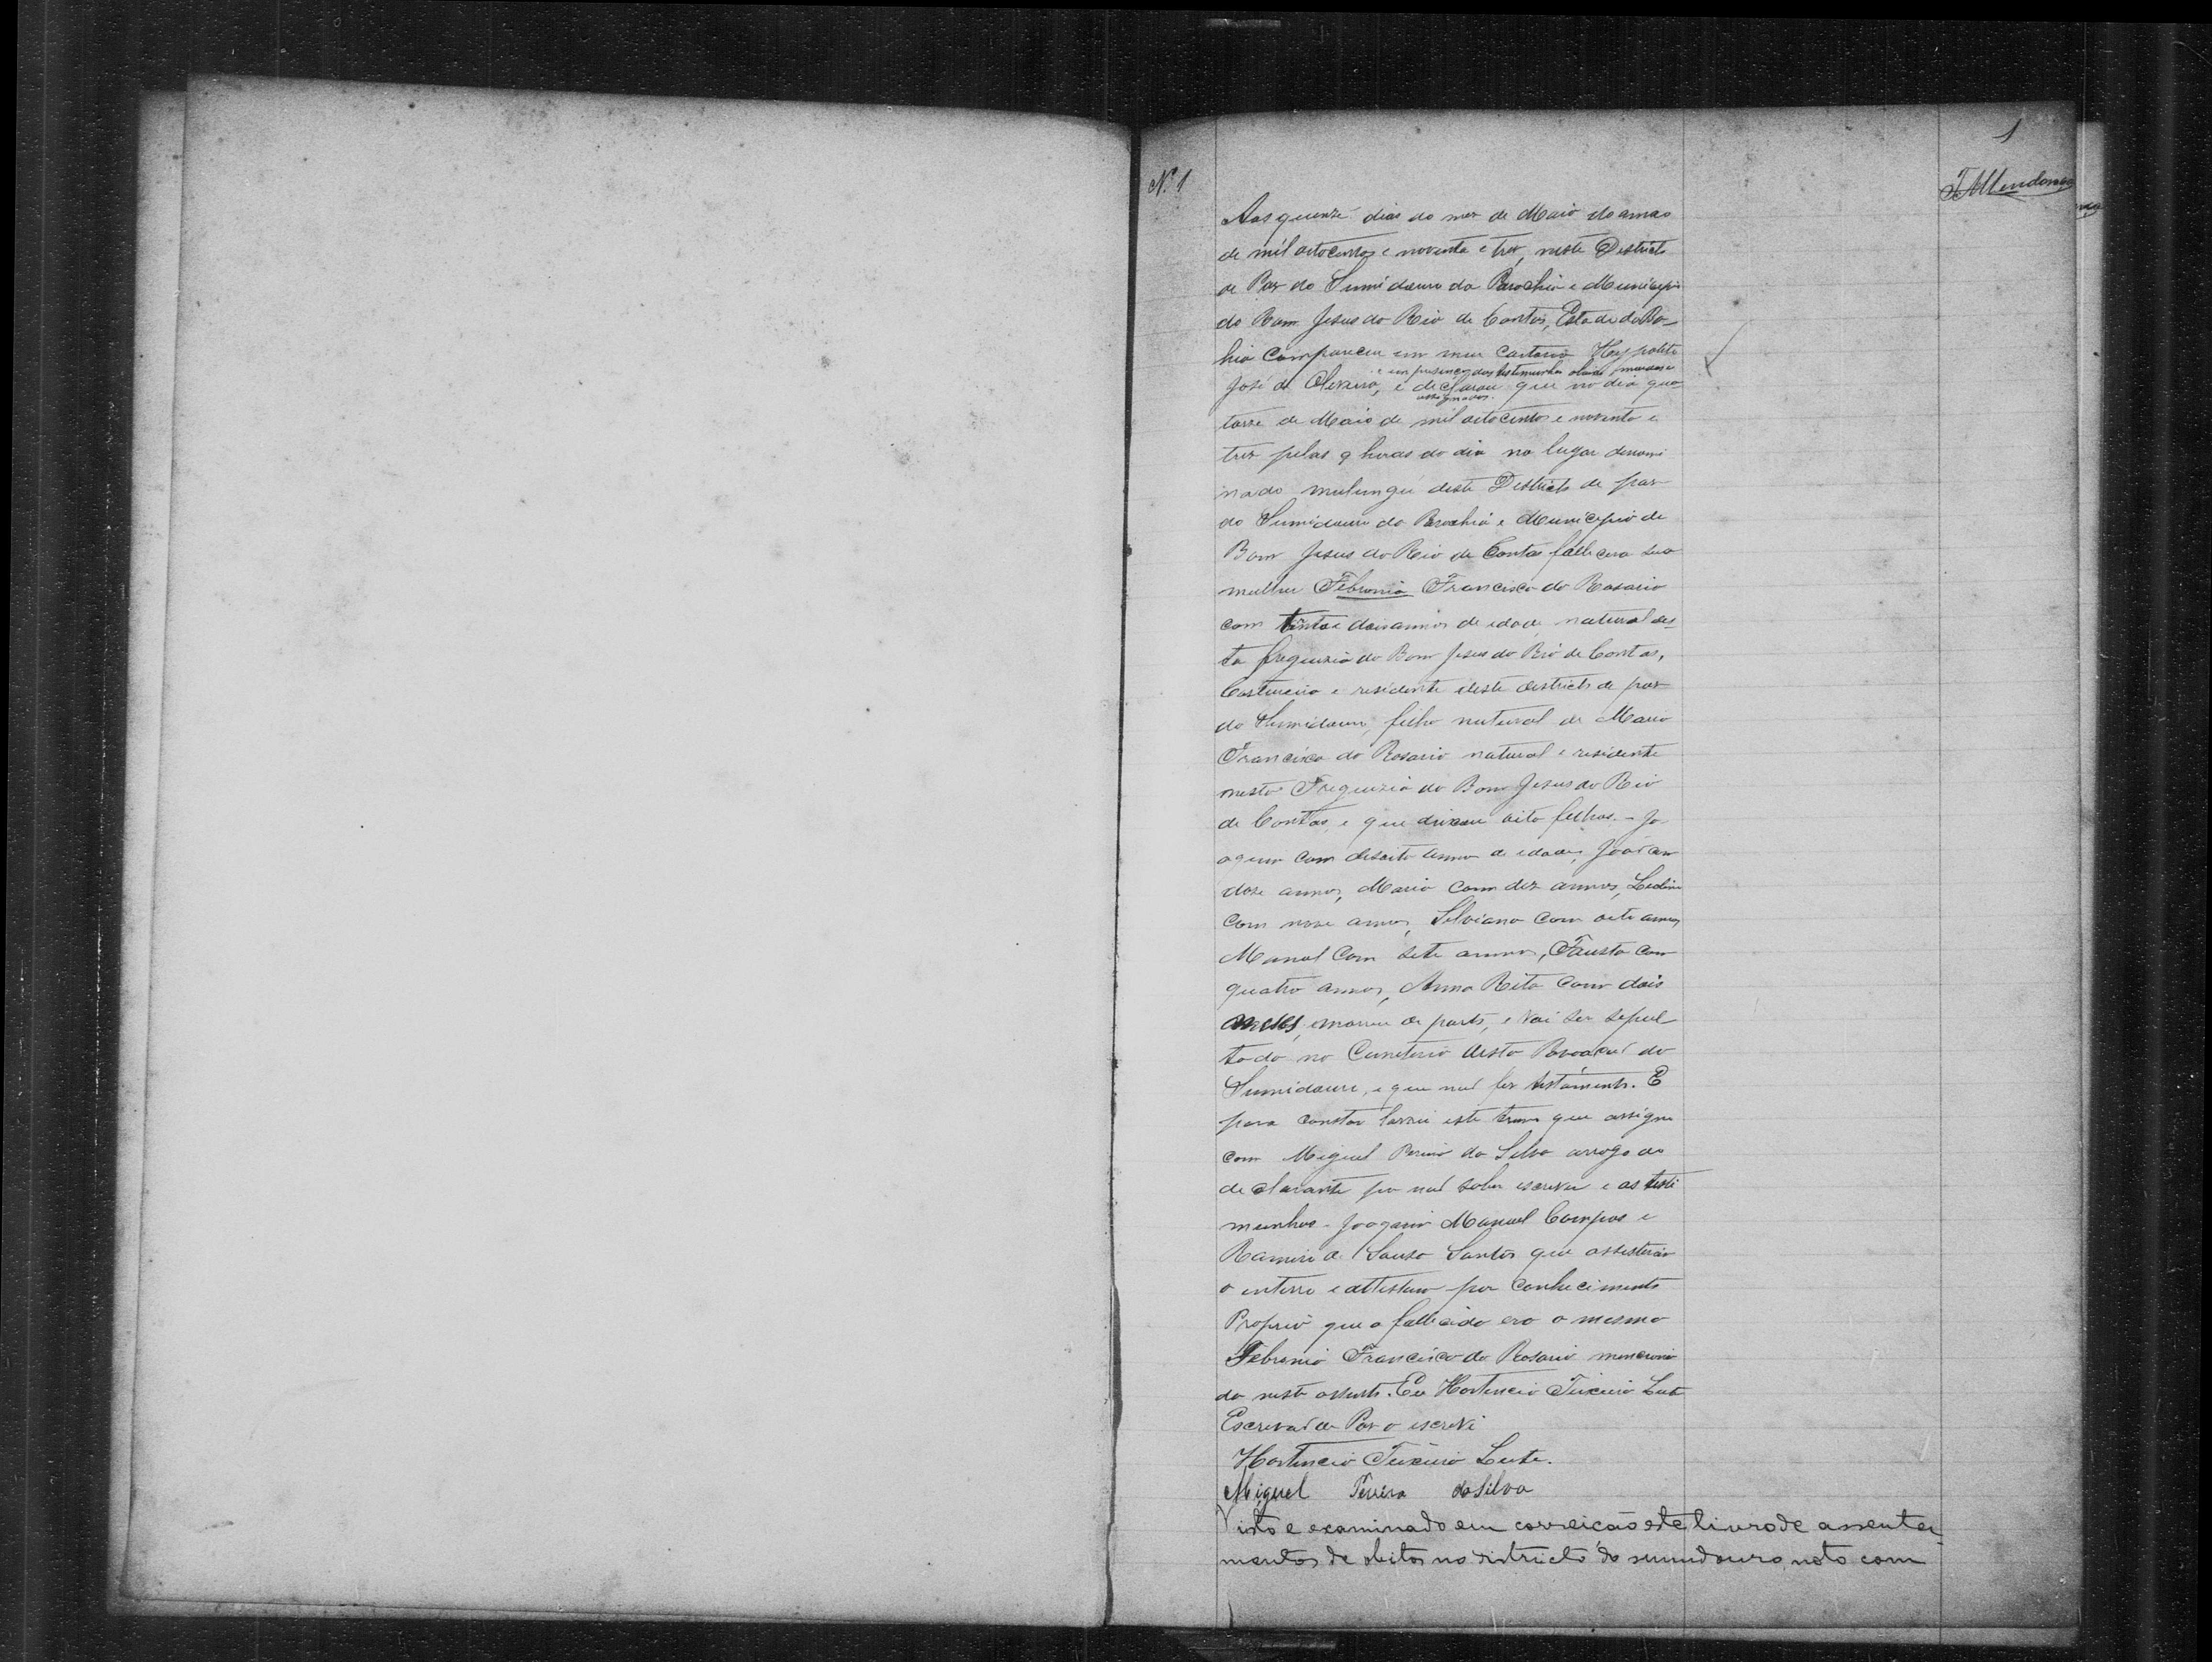 1
TMMendonça
Nº 1
Aos quenze dias do mez de Maio do anno
de mil oitocentos e noventa e tres, neste Destricto
de Paz do Sumidouro da Parochia e Municipio
do Bom Jesus do Rio de Contas, Estado da Ba-
hia compareceu em meu Cartorio Hyppolito
e em presença das testemunhas abaixo
José de Oliveira, e declarou que no dia qua-
assignadas.
torze de Maio de mil oitocentos e noventa e
tres pelas 9 horas do dia no lugar denomi
nado mulungú deste Destricto de paz
do Sumidouro da Parochia e Municipio de
Bom Jesus do Rio de Contas fallecera sua
mulher Febronia Francisca do Rosario
com trinta e dois annos de idade natural des-
ta freguezia do Bom Jesus do Rio de Contas,
Costureira e residente deste destricto de paz
do Sumidouro, filha natural de Maria
Francisca do Rosario natural e residente
nesta Freguezia do Bom Jesus do Rio
de Contas, e que deixou oito filhos. - Jo-
aquim com desoito annos de edade, João com
doze annos, Maria com dez annos,
com nove annos, Silviana com oito annos
Manoel com sete annos, Fausta com
quatro annos, Anna Rita com dois
mezes, morreu de parto, e vai ser sepul
tada no Cemeterio desta Povoação do
Sumidouro, e que não fez testamento. E
para constar lavrei este termo que assigno
com Miguel Pereira da Silva arrogo do
declarante por não saber escrever e as teste
munhas - Joaquim Manoel Campos e
Ramiro de Souza Santos que assisterão
o enterro e attestam por conhecimento
Proprio que a fallecida era a mesma
Febronia Francisca do Rosario menciona
da neste assento. Eu Hortencio Teixeira Leite
Escrivão de Paz o escrevi
Hortencio Teixeira Leite.
Miguel Pereira da Silva
Visto e examinado em correição este livro de assenta-
mentos de obitos no districto do sumidouro, noto com